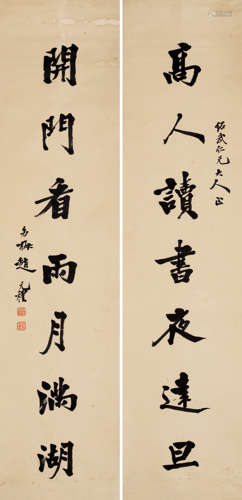 高人讀書夜達旦
紹武仁兄大人正
開門看雨月滿湖
趙元禮